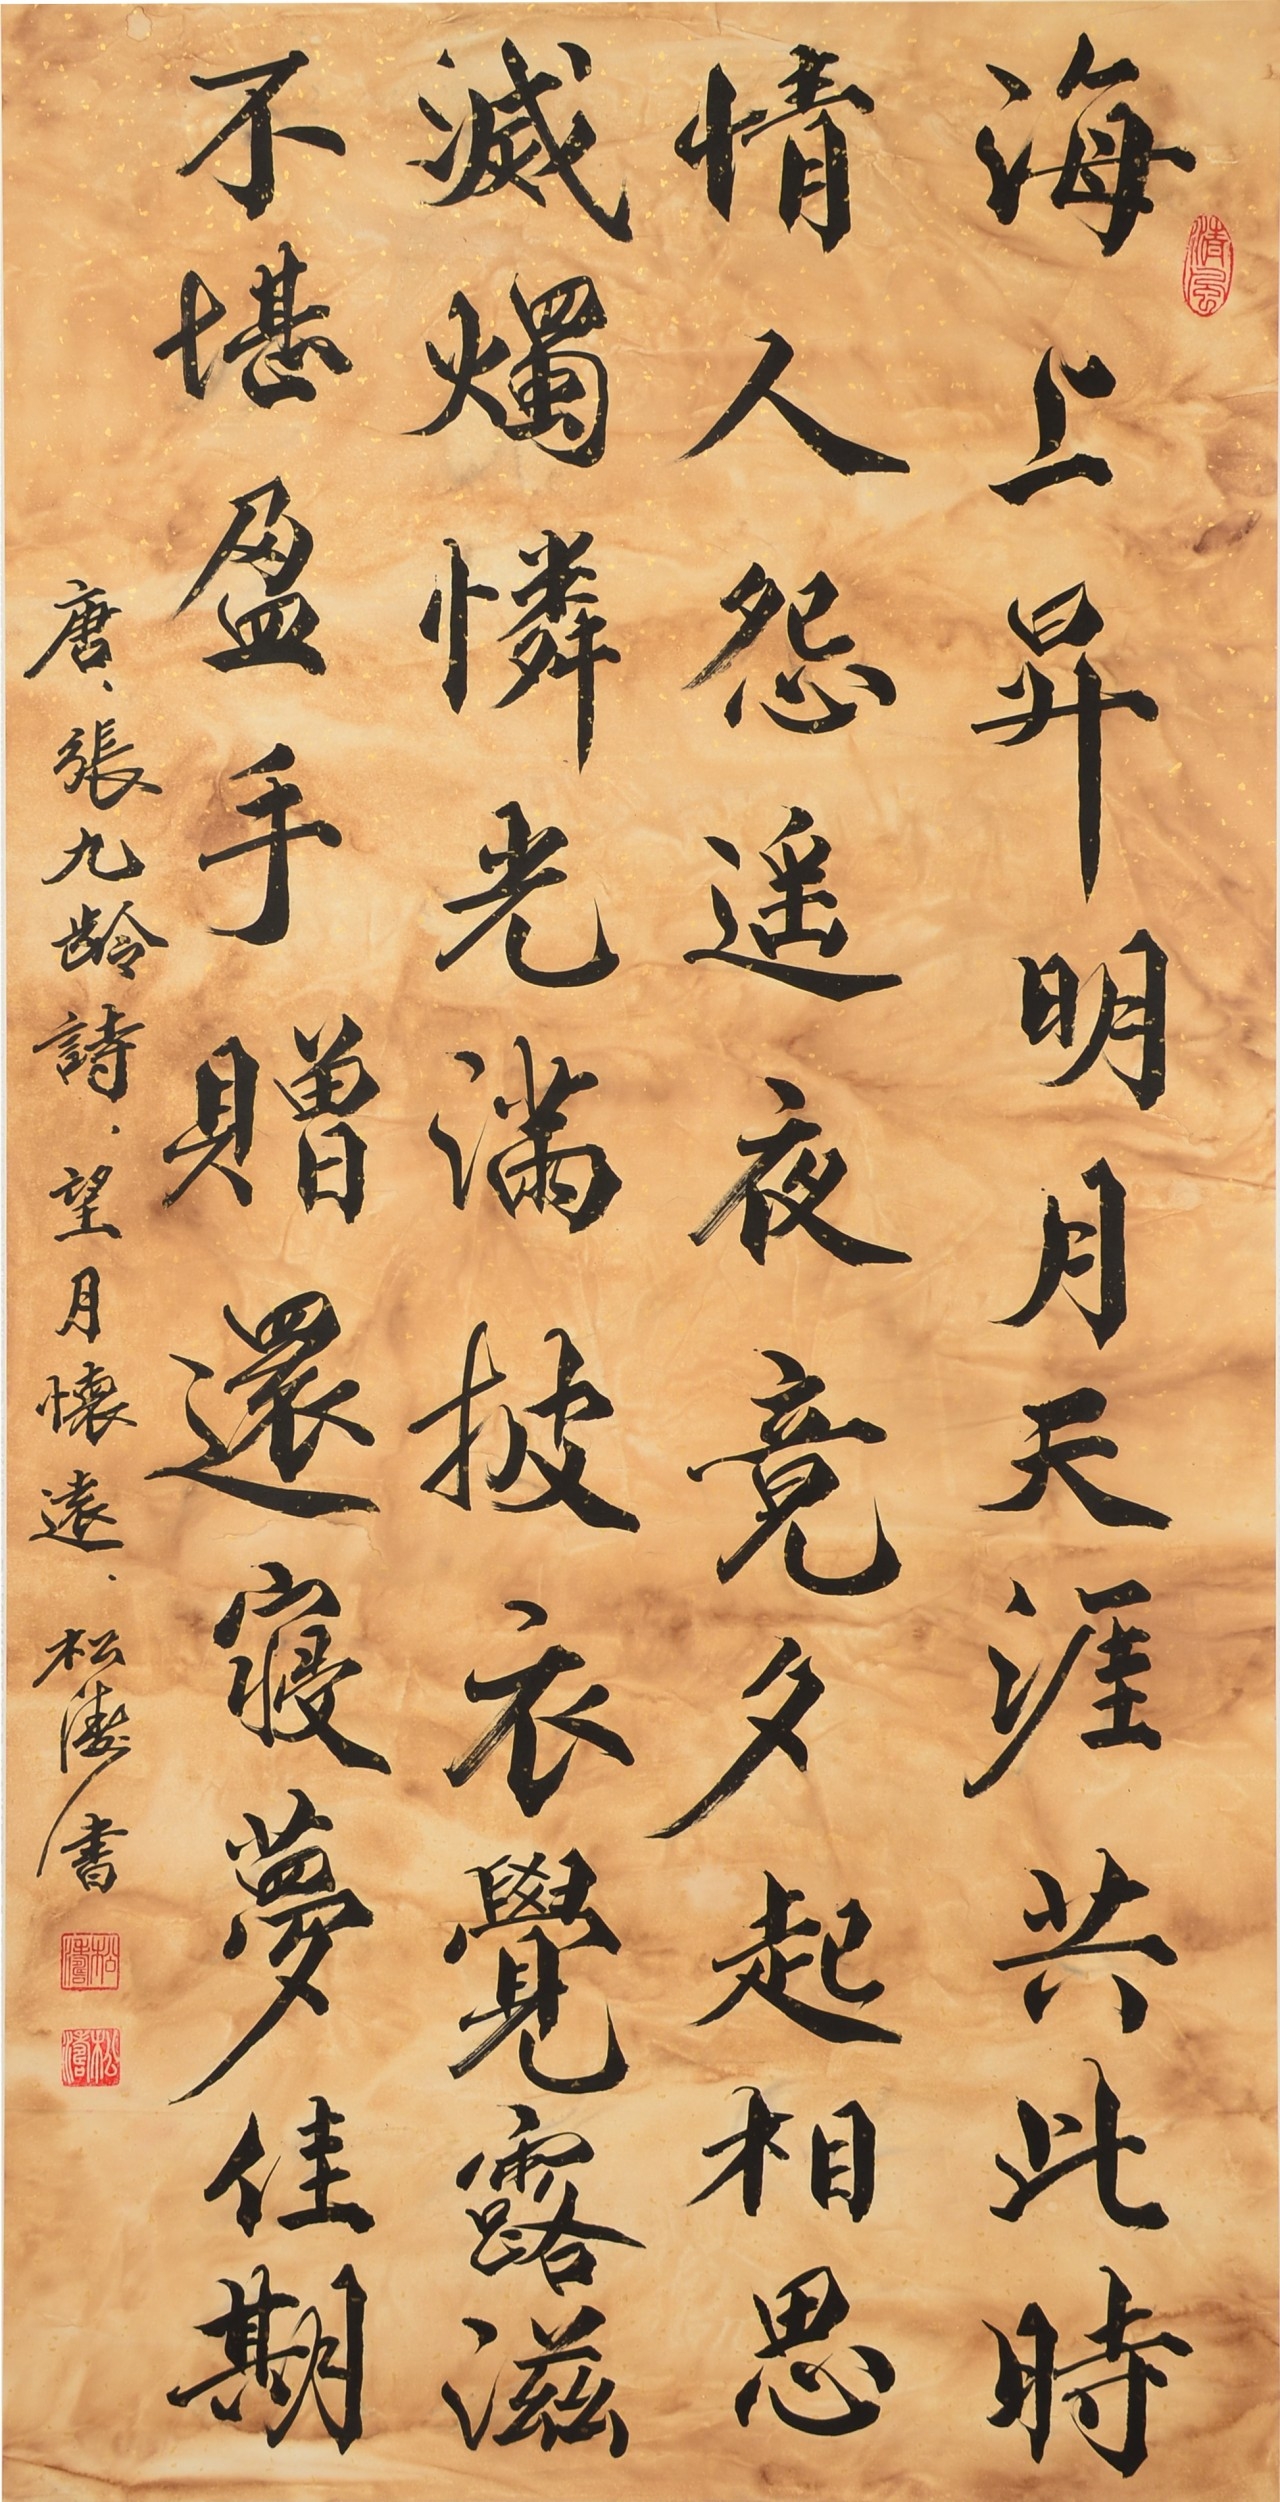 海上昇明月天涯共此時
情人怨遥夜竟夕起相思
滅燭憐光滿披衣覺露滋
不堪盈手贈還寢夢佳期
唐、張九齡詩、望月懷遠、松濤書